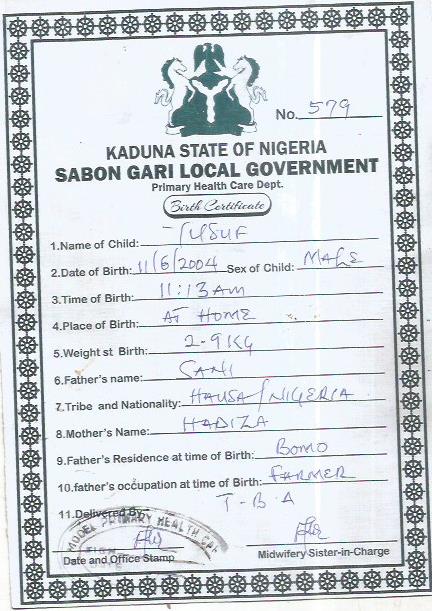 No. 579
KADUNA STATE OF NIGERIA
SABON GARI LOCAL GOVERNMENT
Primary Health Care Dept.
Birth Certificate
1.Name of Child: YUSUF
2.Date of Birth: 11/6/2004 Sex of Child: MALE
3.Time of Birth: 11:13AM
4.Place of Birth: AT HOME
5.Weight st Birth: 2-9KG
6.Father's name: SANI
7.Tribe and Nationality: HAUSA/NIGERIA
8.Mother's Name: HADIZA
9.Father's Residence at time of Birth: BOMO
10.father's occupation at time of Birth: FARMER
11.Delivered By: T-B-A
MODEL PRIMARY HEALTH
Date and Office Stamp
Midwifery Sister-in-Charge